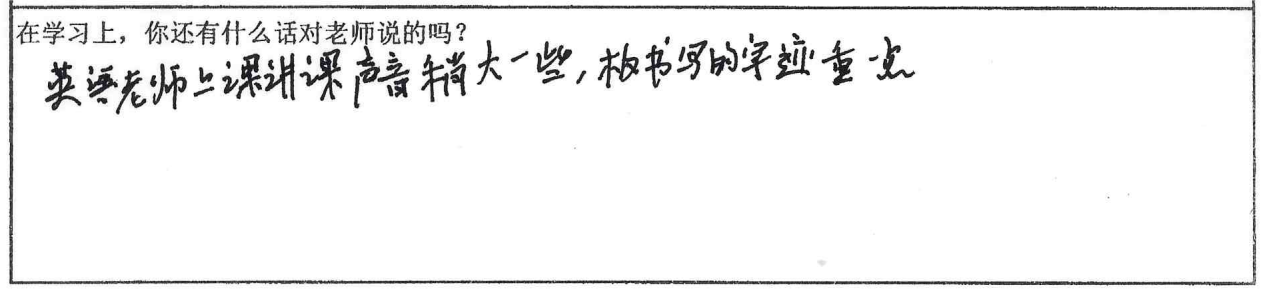 在学习上，你还有什么话对老师说的吗？
英语老师上课讲课声音稍大一些，板书写的字迹重点